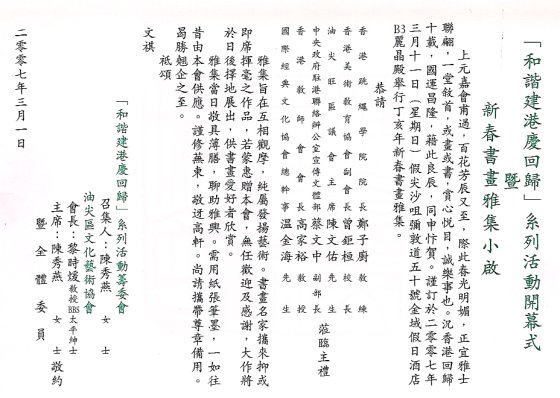 「和諧建港慶回歸」系列活動開幕式
暨
新春書畫雅集小啟
上元嘉會甫過，百花芳辰又至，際此春光明媚，正宜雅士
聯翩，一堂敘首，或畫或書，賞心悅目，誠樂事也。況香港回歸
十載，國運昌隆，藉此良辰，同申忭賀。謹訂於二零零七年
三月十一日（星期日）假尖沙咀彌敦道五十號金域假日酒店
B3麗晶殿舉行丁亥年新春書畫雅集。
恭請
香港跳繩學院院長鄭子廚教練
香港美術教育協會副會長曾鉅桓校長
油尖旺區議會主席陳文佑先生
中央政府駐港聯絡辦公室宣傳文體部蔡文中副部長
香港教師會會長高家裕教授
國際經典文化協會總幹事溫金海先生
蒞臨主禮
雅集旨在互相觀摩，純屬發揚藝術。書畫名家攜來抑或
即席揮毫之作品，若蒙惠贈本會，無任歡迎及感謝，大作將
於日後擇地展出，供書畫愛好者欣賞。
雅集當日敬具薄膳，聊助雅興。需用紙張筆墨，一如往
昔由本會供應。謹修蕪柬，敬迓高軒。尚請攜帶尊章備用。
曷勝翹企之至。
祗頌
文祺
「和諧建港慶回歸」系列活動籌委會
召集人：陳秀燕女士
油尖區文化藝術協會
會長：黎時煖教授BBS太平紳士
主席：陳秀燕女士
暨全體委員
敬約
二零零七年三月一日